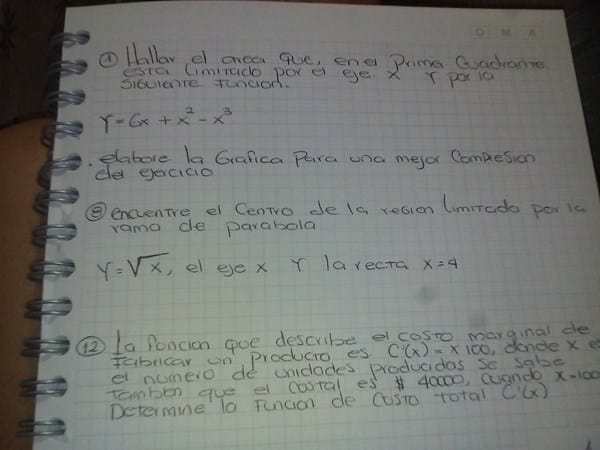 D M A
① Hallar el area que, en el Primer Cuadrante
esta limitado por el eje. X Y por la
siguiente funcion.
Y=6x + x² - x³
. elabore la Grafica Para una mejor Compresion
del ejercicio
⑧ encuentre el Centro de la region limitado por la
rama de parabola
Y=√x, el eje x Y la recta x=4
⑫ La Foncion que describe el costo marginal de
Fabricar un producto es C'(x) = x 100, donde x es
el numero de unidades producidas se sabe
tambien que el costal es $ 40000, cuando x=100
Determine la Funcion de Costo total C'(x)